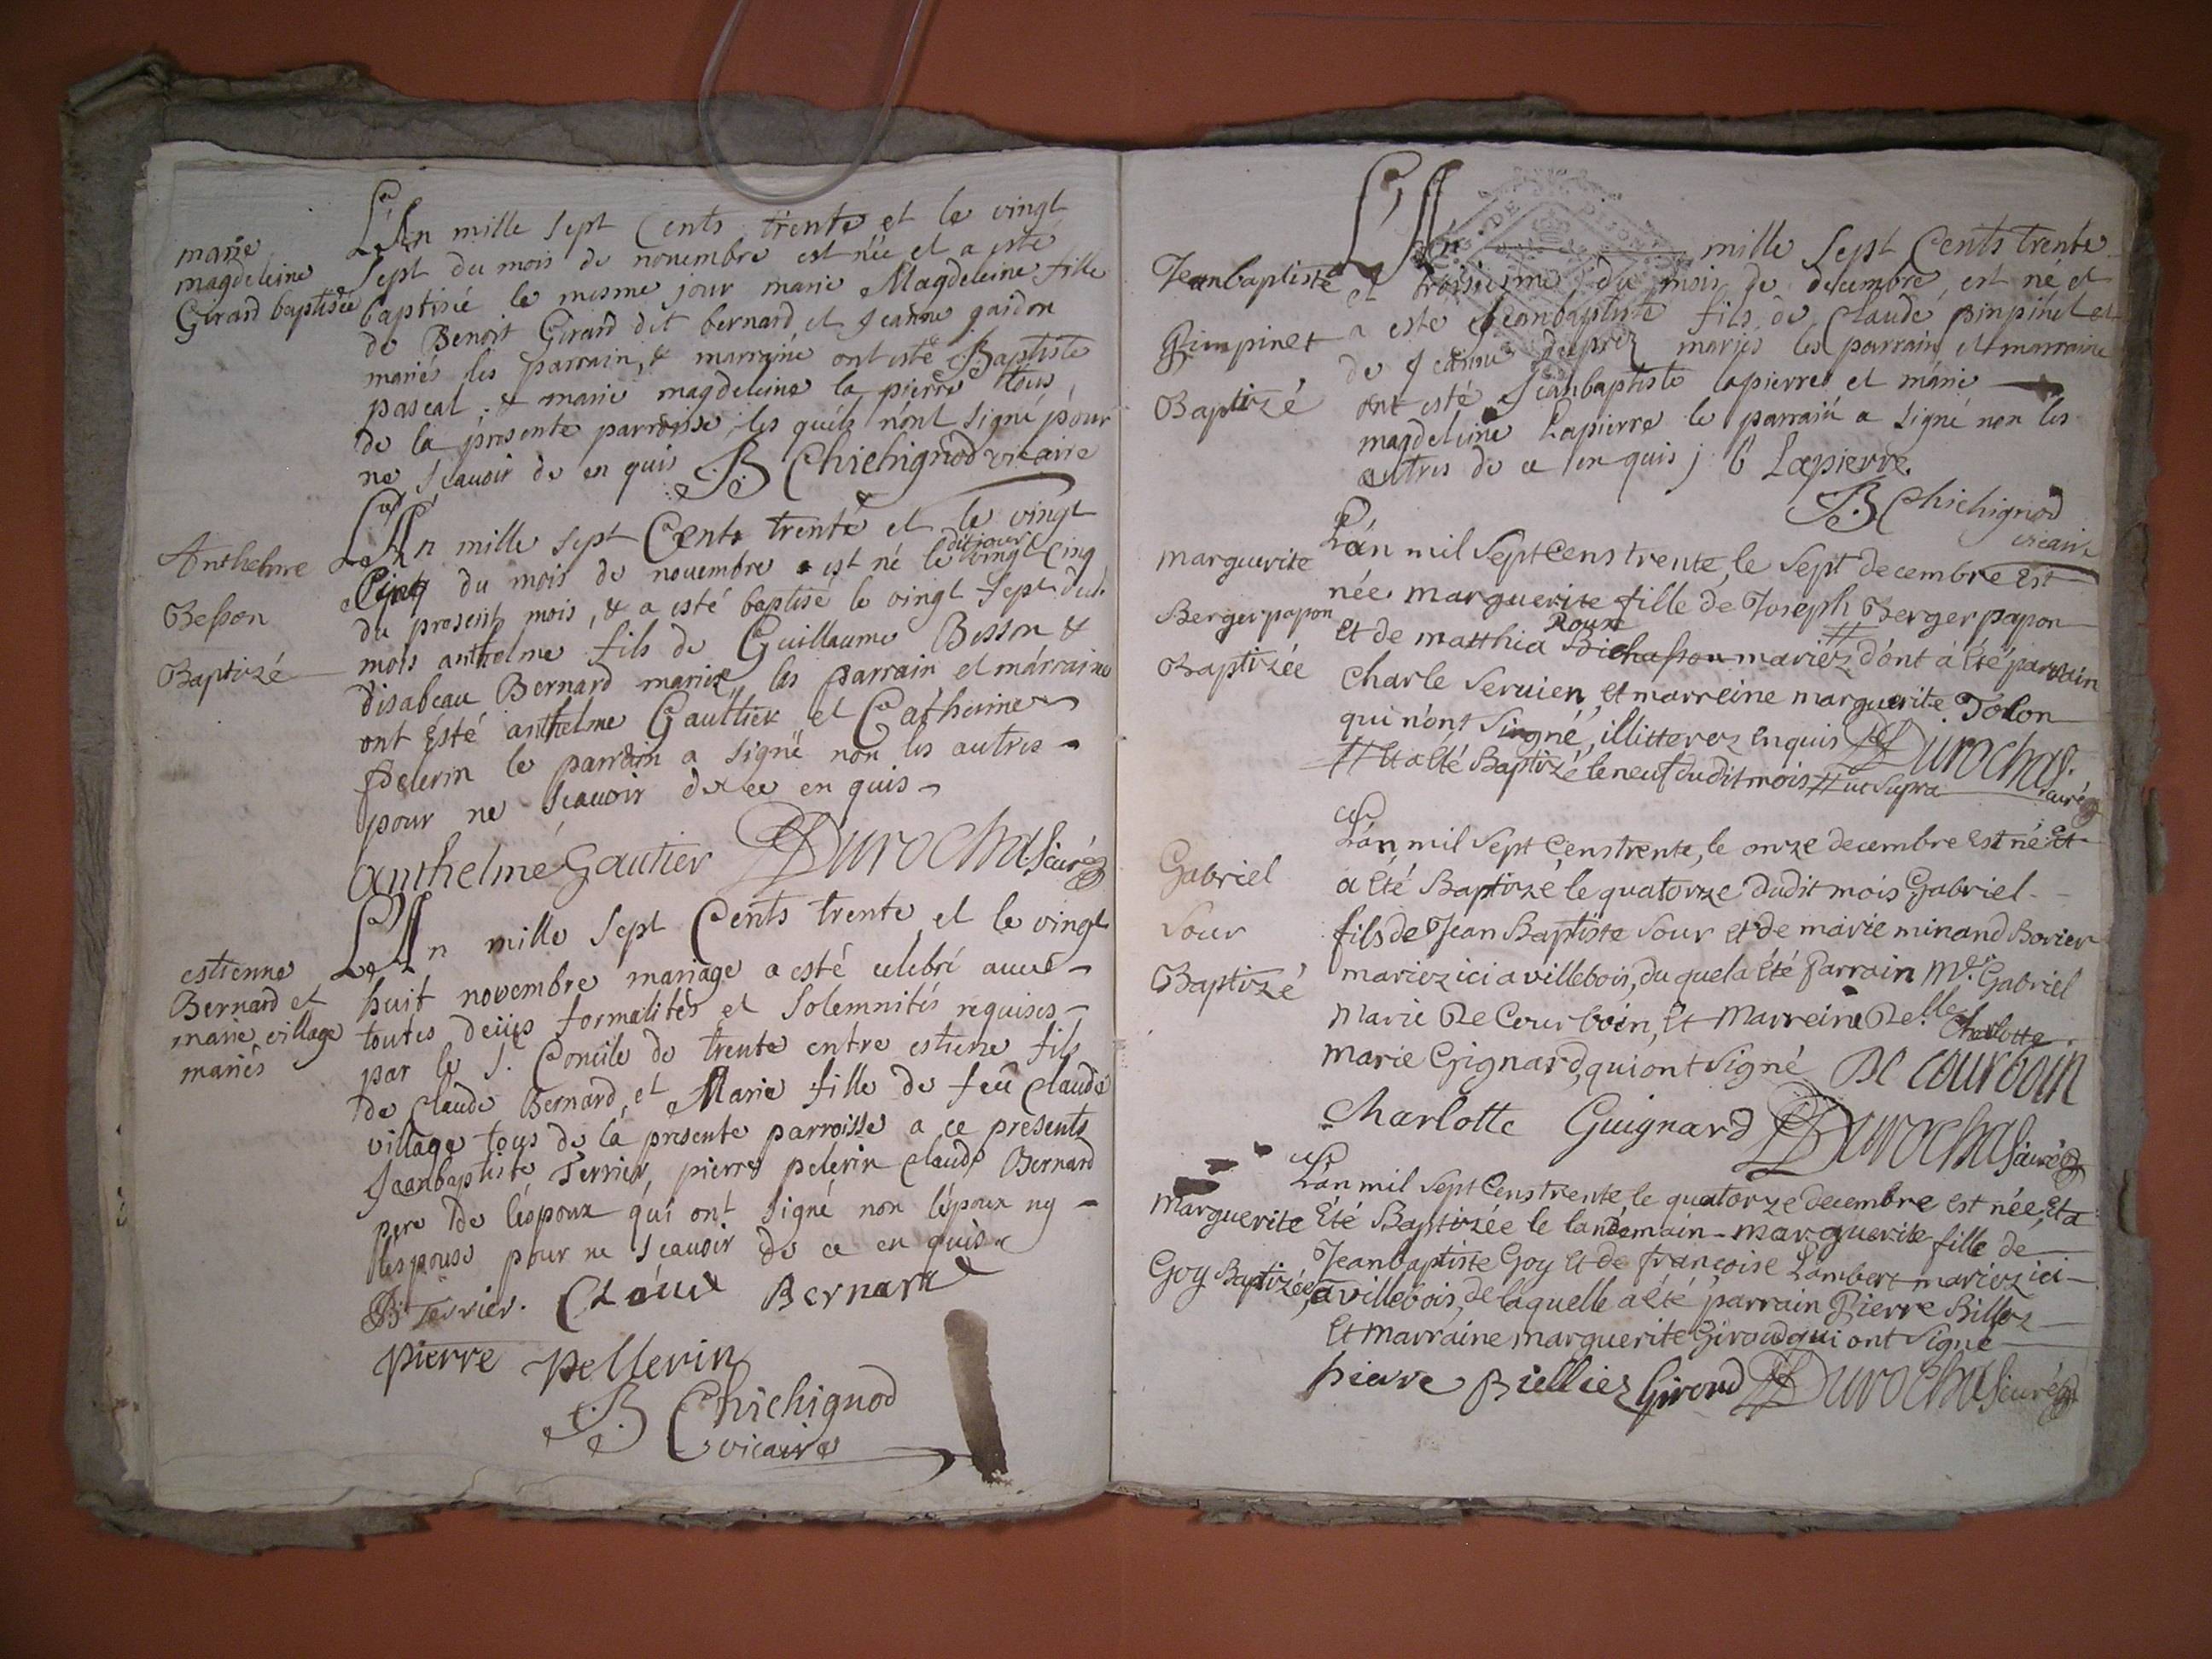 marie
magdeleine
Girard baptisée
L'An mille sept Cents trente et le vingt
sept du mois de nouembre est née et a esté
baptisée le mesme jour marie Magdeleine fille
de Benoit Girard dit bernard et Jeanne gaidon
mariés les parrain, & marraine ont esté Baptiste
pascal & marie magdeleine la pierre tous
de la presente parroisse, les quels n'ont signé pour
ne scauoir de en quis B Chichignod vicaire
Anthelme
Besson
Baptizé
L'An mille sept Cents trente et le vingt
Cinq du mois de nouembre est né le dit jour vingt Cinq
du present mois, & a esté baptisé le vingt sept dud.
mois anthelme fils de Guillaume Besson &
disabeau Bernard mariez, les parrain et marraine
ont esté anthelme Gaultier et Catherine
Pelerin le parrain a signé non les autres
pour ne scauoir de ce en quis
anthelme Gautier Durochat curé
estienne
Bernard et
marie village
mariés
L'An mille sept Cents trente et le vingt
huit novembre mariage a esté celebré auec
toutes deües formalités et Solemnités requises
par le S. Concile de trente entre estiene fils
de Claude Bernard, et Marie fille de feu Claude
village tous de la presente parroisse a ce presents
Jeanbaptiste Terrier, pierre pelerin Claude Bernard
pere de l'espoux qui ont signé non l'époux ny
l'espouse pour ne scauoir de ce en quis
B Terrier. Claude Bernard
pierre pellerin
B Chichignod
vicaire
Jeanbaptiste
Pimpinet
Baptizé
L'An mille sept Cents trente
et troisieme du mois de decembre, est né et
a esté Jeanbaptiste fils de Claude Pimpinet et
de Jeanne duprez mariés les parrain et marraine
ont esté Jeanbaptiste lapierre et marie
magdeleine Lapierre le parrain a signé non les
autres de ce en quis j b Lapierre.
B Chichignod
vicaire
Marguerite
Berger papon
Baptizée
L'an mil Sept Cens trente, le Sept decembre Est
née marguerite fille de Joseph Berger papon
Et de matthia Roux Bichasson mariez # d'ont a Eté parrain
Charle Seruien, Et marreine marguerite Tolon
qui n'ont Signé, illitterez enquis Durochat curé
# Et a Eté Baptizé le neuf dudit mois # ut Supra
Gabriel
Sour
Baptizé
L'an mil Sept Cens trente, le onze decembre Est né Et
a Eté Baptizé le quatorze dudit mois Gabriel
fils de Jean Baptiste Sour et de marie minand Borier
mariez ici a villebois, du quel a Eté Parrain Mr. Gabriel
Marie De Courboin, Et Marreine Delle Charlotte
Marie Gignard, qui ont Signé De courboin
Charlotte Guignard Durochat curé
Marguerite
Goy Baptizée
L'an mil Sept Cens trente, le quatorze decembre est née, Et a
Eté Baptizée le landemain marguerite fille de
Jeanbaptiste Goy Et de françoise Lambert mariez ici
a villebois, de laquelle a été parrain Pierre Billiez
Et marraine marguerite Giroud qui ont Signé
pieare Bielliez Giroud Durochat curé